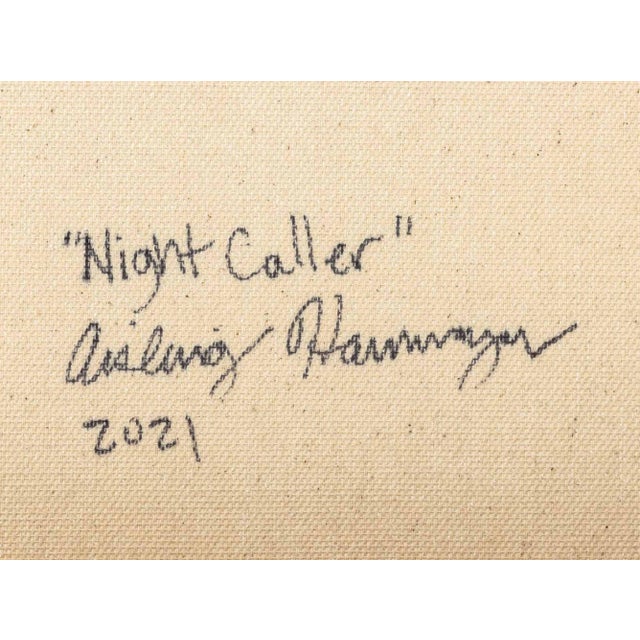 "Night Caller"
Aisling Hamrogue
2021